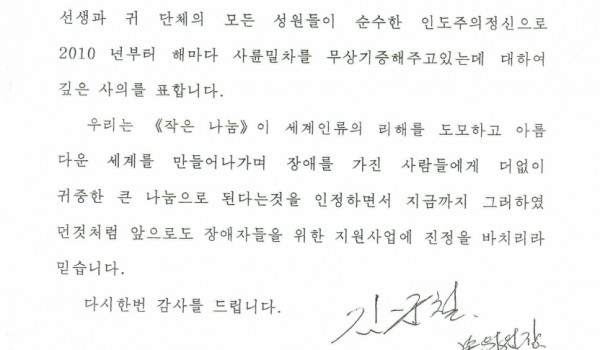 선생과 귀 단체의 모든 성원들이 순수한 인도주의정신으로
2010 년부터 해마다 사륜밀차를 무상기증해주고있는데 대하여
깊은 사의를 표합니다.
우리는 《작은 나눔》이 세계인류의 리해를 도모하고 아름
다운 세계를 만들어나가며 장애를 가진 사람들에게 더없이
귀중한 큰 나눔으로 된다는것을 인정하면서 지금까지 그러하였
던것처럼 앞으로도 장애자들을 위한 지원사업에 진정을 바치리라
믿습니다.
다시한번 감사를 드립니다.